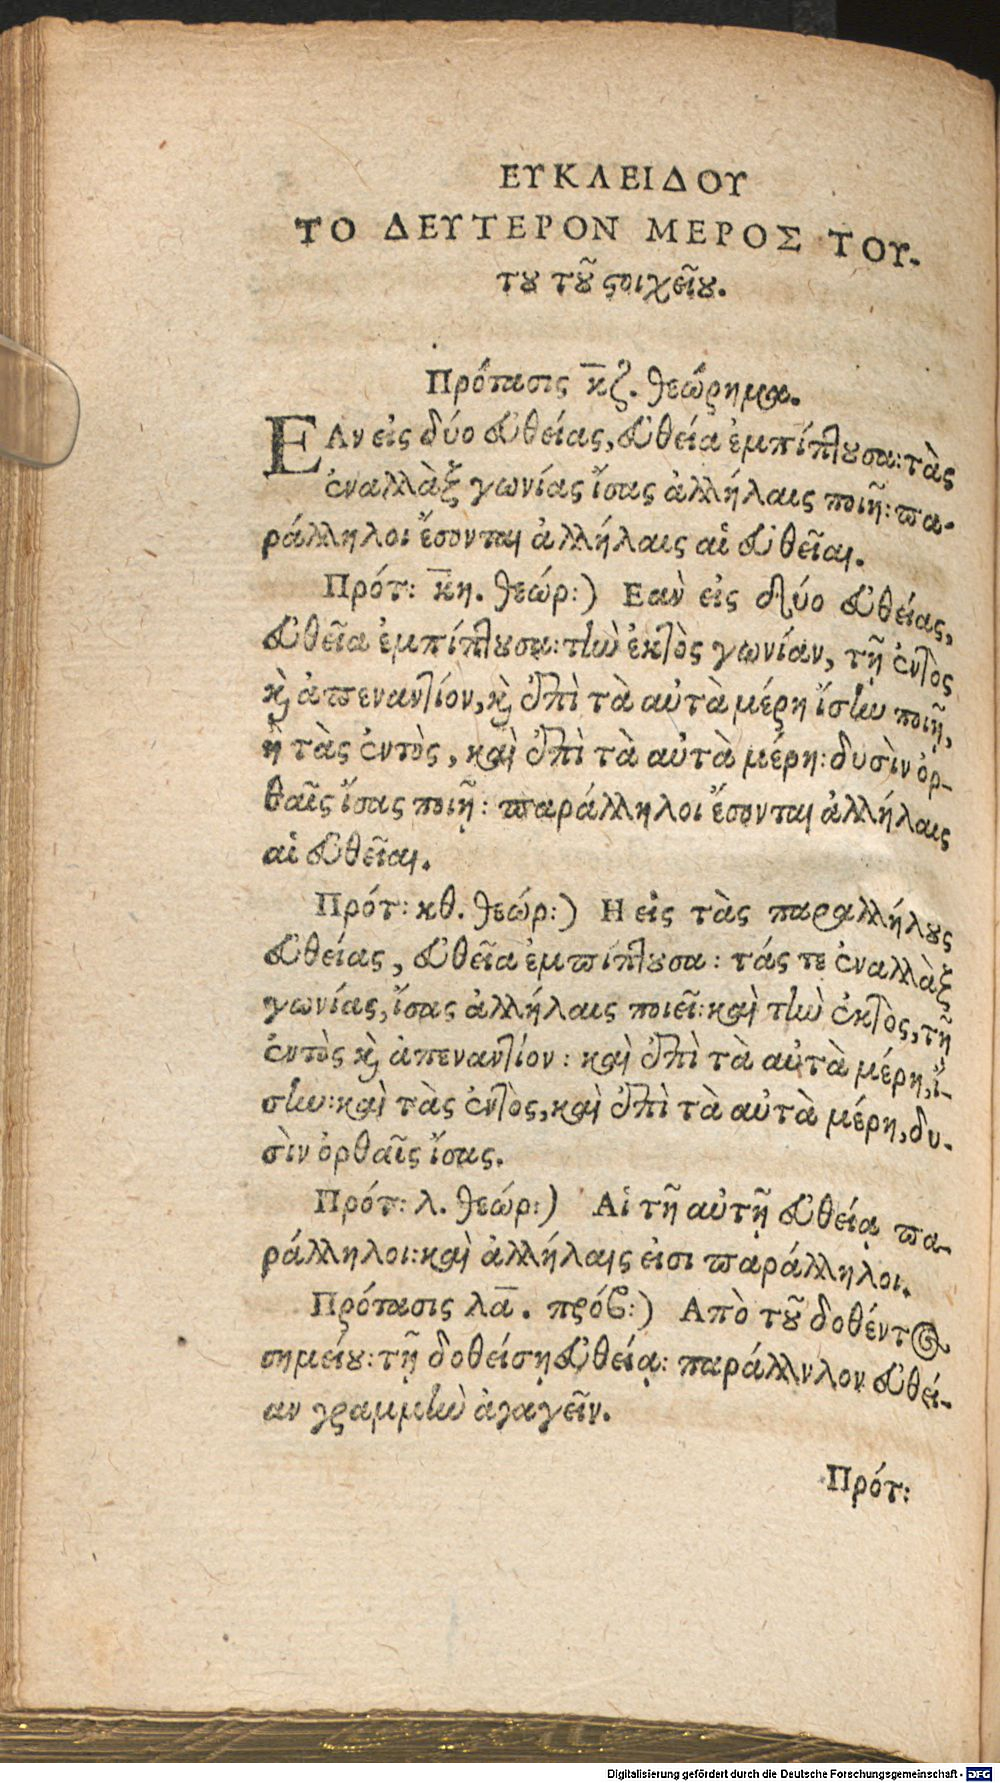 ΕΥΚΛΕΙΔΟΥ
ΤΟ ΔΕΥΤΕΡΟΝ ΜΕΡΟΣ ΤΟΥ-
του τοῦ ϛοιχεῖου.
Πρότασις κ̅ζ. θεώρημα.
ΕΑν εἰς δύο εὐθείας, εὐθεία ἐμπίπτουσα: τὰς
ἐναλλὰξ γωνίας ἴσας ἀλλήλαις ποιῇ: πα-
ράλληλοι ἔσονται ἀλλήλαις αἱ εὐθεῖαι.
Πρότ: κ̅η. θεώρ:) Εαν̀ εἰς δύο εὐθείας,
εὐθεῖα ἐμπίπτουσα: τὴν ἐκτὸς γωνίαν, τῇ ἐντὸς
καὶ ἀπεναντίον, καὶ ἐπὶ τὰ αὐτὰ μέρη ἴσην ποιῇ,
ἢ τὰς ἐντὸς, καὶ ἐπὶ τὰ αὐτὰ μέρη: δυσὶν ὀρ-
θαῖς ἴσας ποιῇ: παράλληλοι ἔσονται ἀλλήλαις
αἱ εὐθεῖαι.
Πρότ: κθ. θεώρ:) Η εἰς τὰς παραλλήλους
εὐθείας, εὐθεῖα ἐμπίπτουσα: τάς τε ἐναλλὰξ
γωνίας, ἴσας ἀλλήλαις ποιεῖ: καὶ τὴν ἐκτὸς, τῇ
ἐντὸς καὶ ἀπεναντίον: καὶ ἐπὶ τὰ αὐτὰ μέρη, ἴ-
σην: καὶ τὰς ἐντὸς, καὶ ἐπὶ τὰ αὐτὰ μέρη, δυ-
σὶν ὀρθαῖς ἴσας.
Πρότ: λ. θεώρ:) Αἱ τῇ αὐτῇ εὐθείᾳ πα-
ράλληλοι: καὶ ἀλλήλαις εἰσι παράλληλοι.
Πρότασις λα̅. πρόβ:) Απὸ τοῦ δοθέντος
σημείου: τῇ δοθείσῃ εὐθείᾳ: παράλλνλον εὐθεί-
αν γραμμὴν ἀγαγεῖν.
Πρότ:
Digitalisierung gefördert durch die Deutsche Forschungsgemeinschaft - DFG